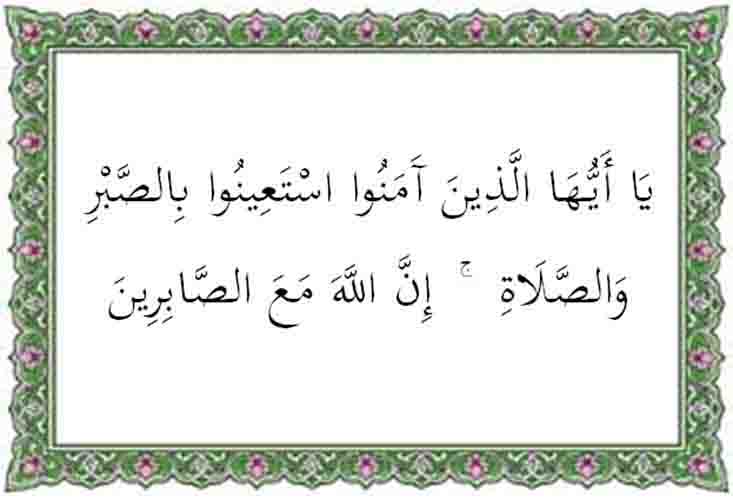 يَا أَيُّهَا الَّذِينَ آمَنُوا اسْتَعِينُوا بِالصَّبْرِ
وَالصَّلَاةِ ۚ إِنَّ اللَّهَ مَعَ الصَّابِرِينَ